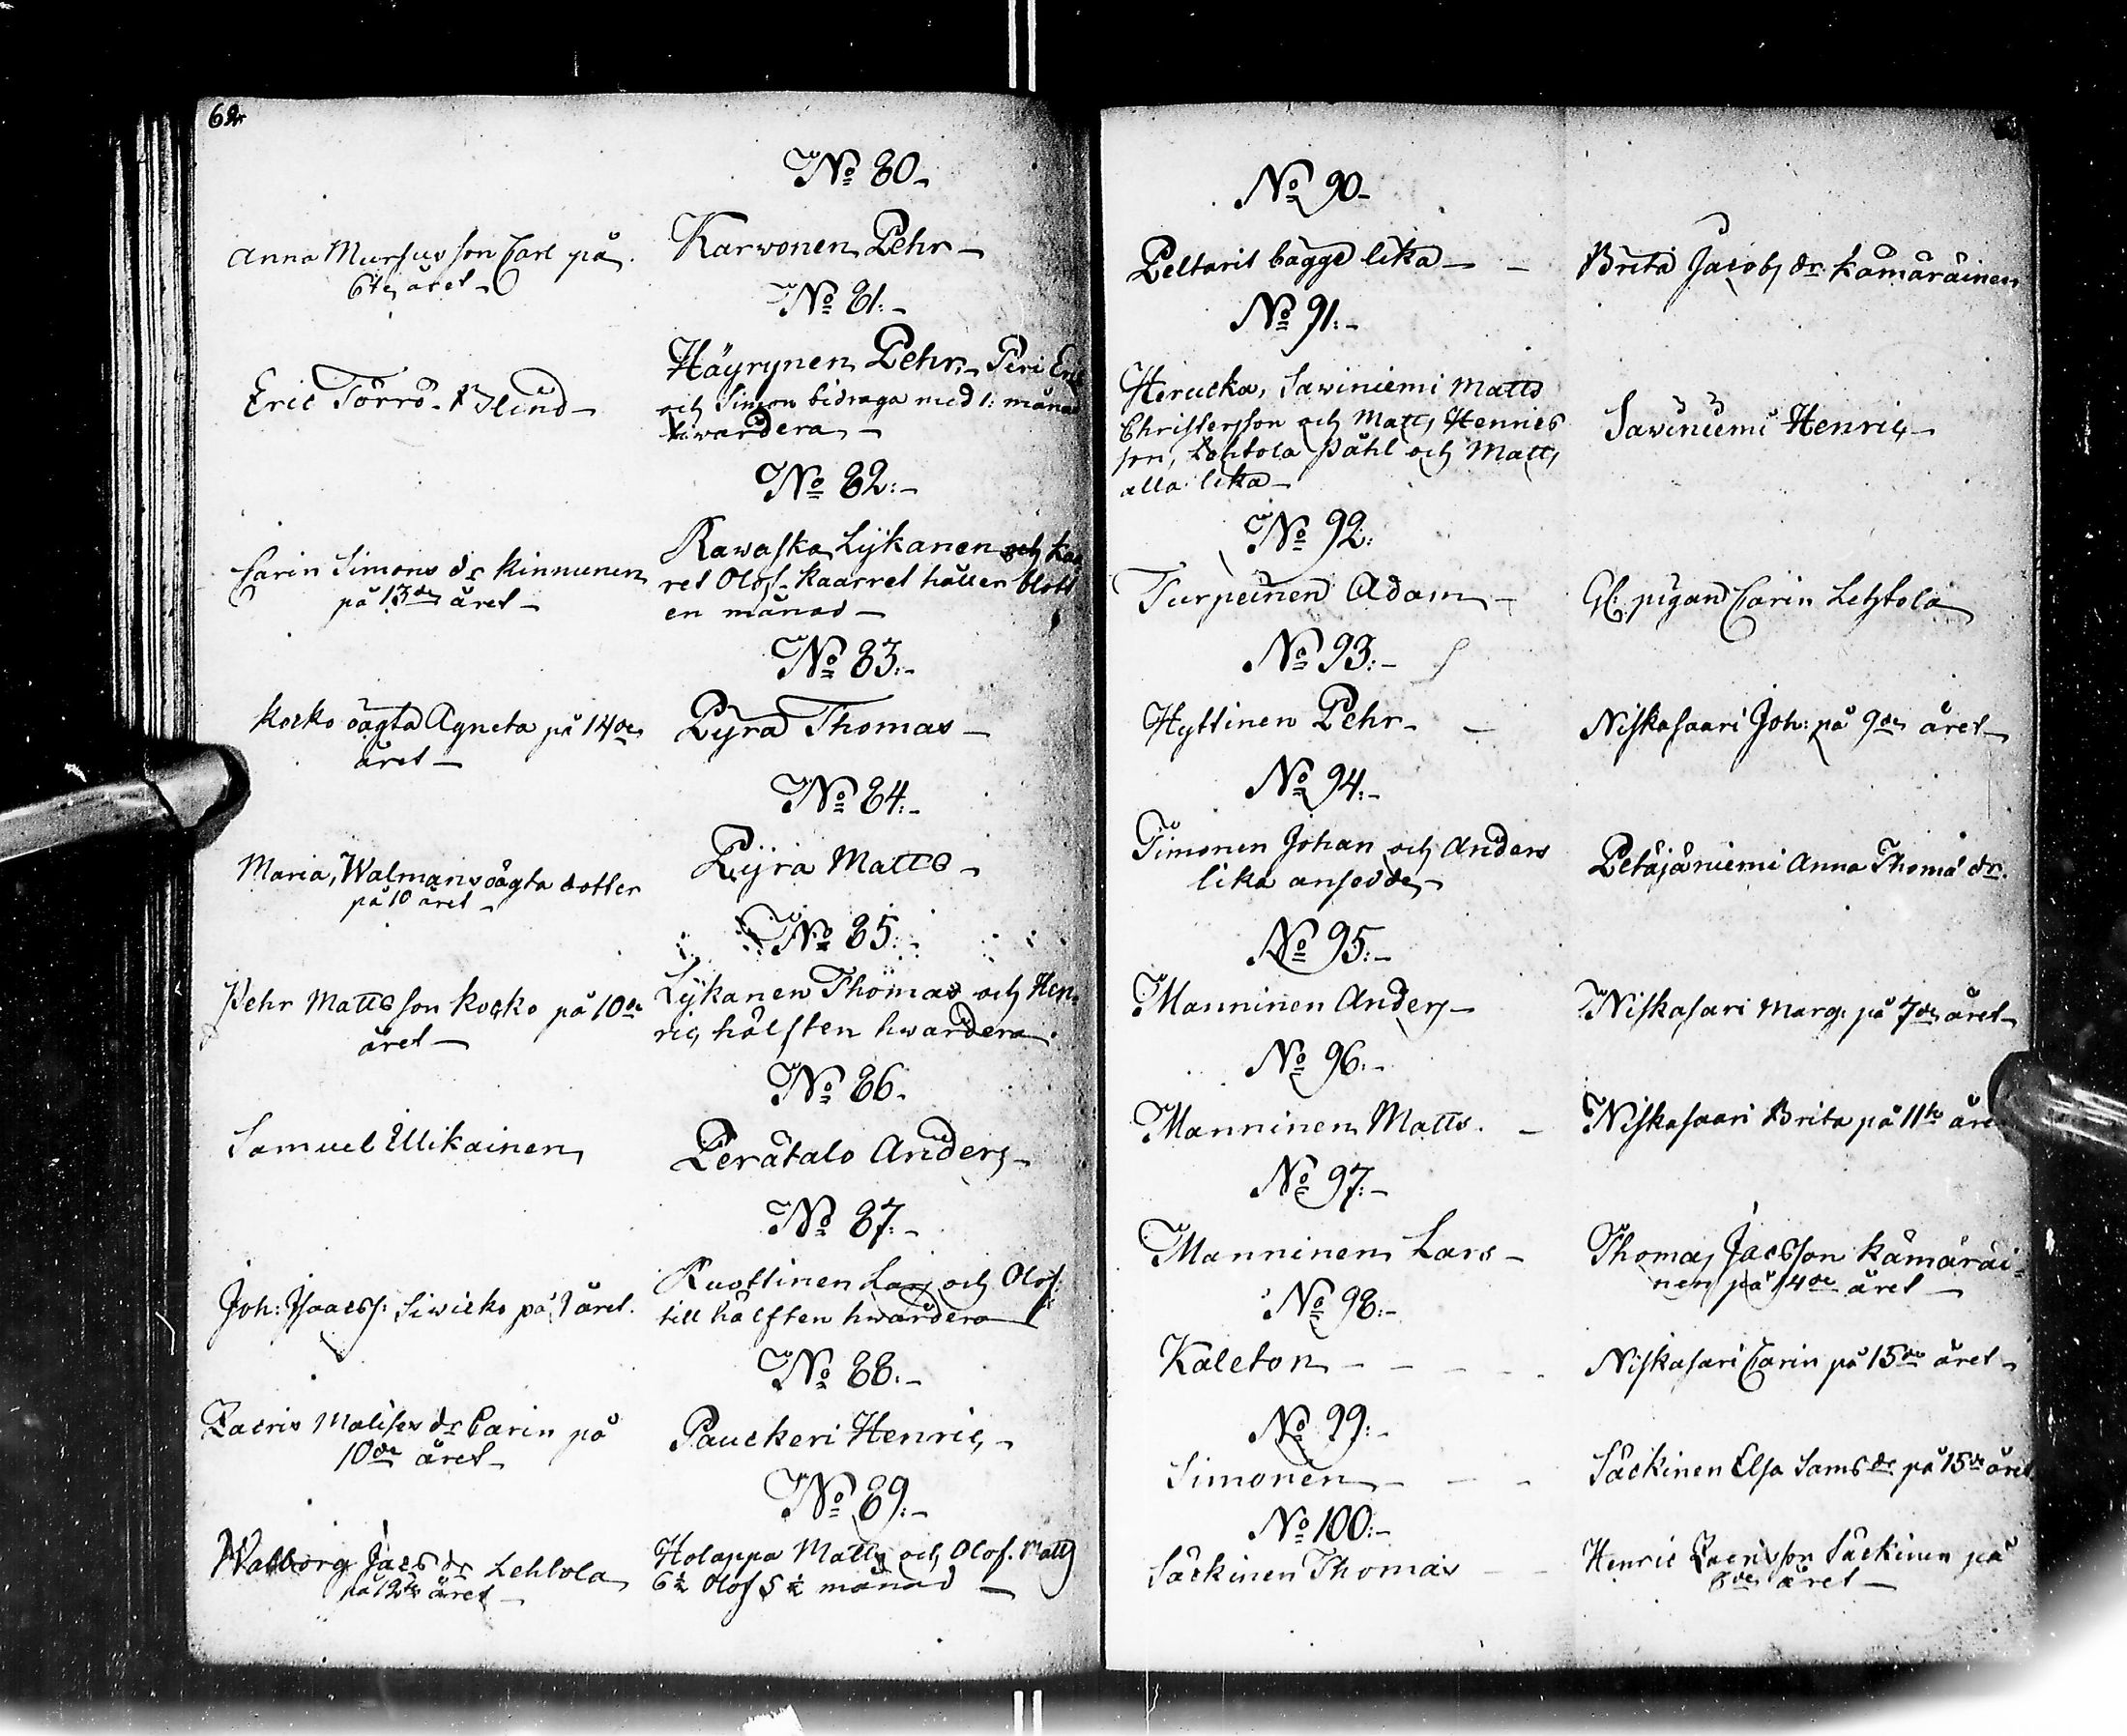 62
No 80
Anna Mursus son Carl på
6te året
Karvonen Pehr
No 81:
Eric Törrö Blind
Häyrynen Pehr, Peri Eric
och Simon bidraga med 1: månad
hvardera
No 82:
Carin Simons dr Kinnunen
på 13de året
Rawaska Lÿkanen och Kaa
ret Olof. Kaarret håller blott
en månad
No 83:
Kocko oägta Agneta på 14de
året
Pyrä Thomas
No 84:
Maria, Walmans oägta dotter
på 10 året
Pÿrä Matts
No 85:
Pehr Mattsson Kocko på 10de
året
Lÿkanen Thomas och Hen-
ric, hälften hwardera
No 86.
Samuel Ulikainen
Perätalo Anders
No 87:
Joh: Isaacss: Siwicko på året.
Ruottinen Lars och Olof:
till hälften hwardera
No 88:
Zacris Matissex dr Carin på
10de året
Pauckeri Henric
No 89:
Walborg Jacs dr Lehtola
på 12te året
Holappa Matts och Olof. Matts
6½ Olof 5½ månad
No 90
Peltarit bägge lika
Brita Jacobs dr Kämäräinen
No 91:
Herucka, Sawiniemi Matts
Christersson och Matts Henrics
son, Lohtola Påhl och Matts
alla lika
Sawiniemi Henric
No 92:
Turpeinen Adam
Gl: pigan Carin Lehtola
No 93:
Hyttinen Pehr
Niskasaari Joh: på 9de året
No 94:
Timonen Johan och Anders
lika ansedde
Petäjäniemi Anna Thoms dr.
No 95:
Manninen Anders
Niskasari Marg: på 7de året
No 96:
Manninen Matts.
Niskasaari Brita på 11te åre
No 97:
Manninen Lars
Thomas Jacsson Kämäräi-
nen på 14de året
No 98:
Kaleton
Niskasari Carin på 15de året
No 99:
Simonen
Säckinen Elsa Sams dr på 15de året
No 100:
Säckinen Thomas
Henric Zacrisson Säckinen på
6de året